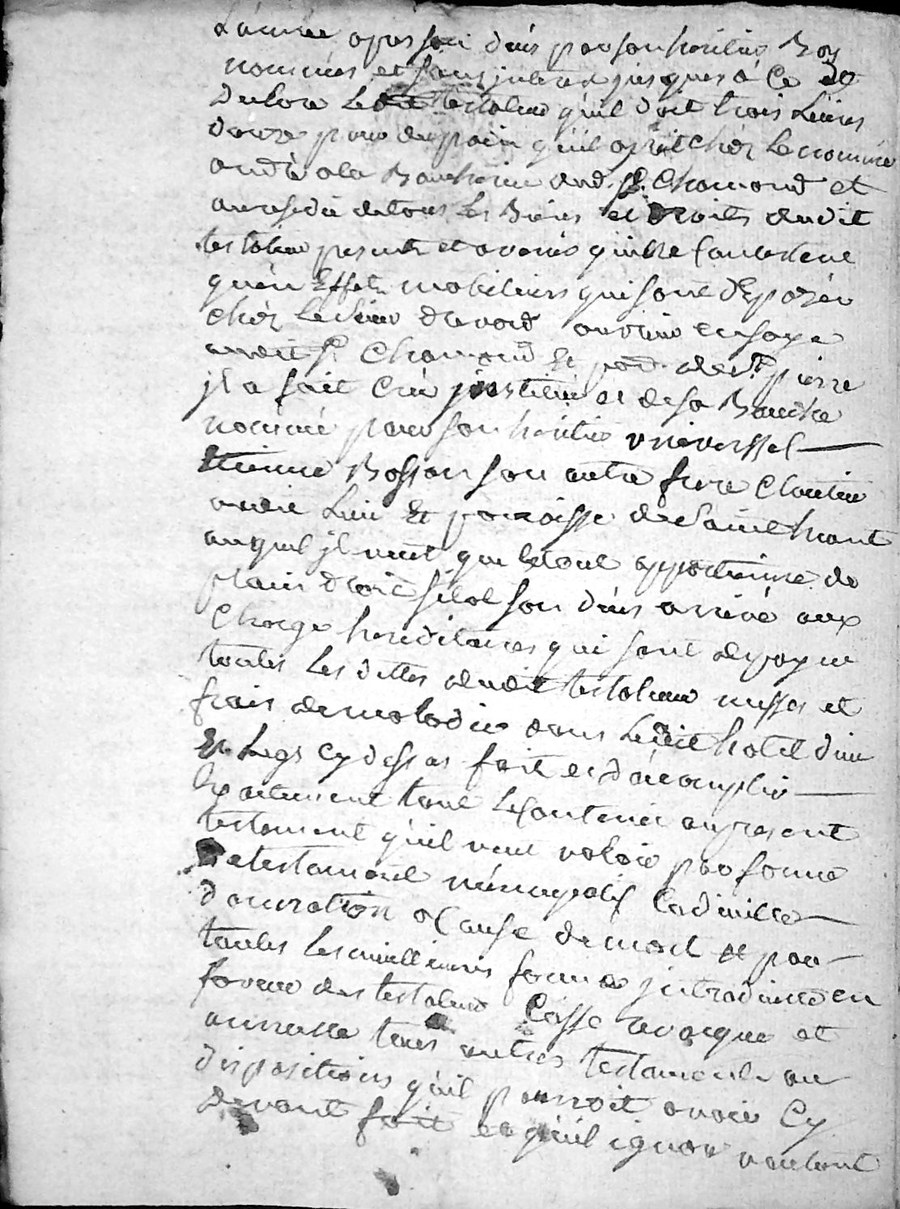 L'année apres son deces par son heritier Bas
nommés et sans interes jusques a ce De
Declare Le testateur qu'il doit trois Livres
douze pour du pain qu'il a prit chez Le nommé
andré a la Boucherie aud. St. Chamond et
au residu de tous Les Biens et Droits dudit
testateur presents et avenir qu'il ne Consistent
qu'en Effets mobiliers qui sont deposés
chéz Le sieur ouvrier en soye
audit St. Chamond Et par. de St. pierre
jl a fait Crée jnstitué et de sa Bouche
nommé pour son héritier vniverssel
Etienne Bosson son autre frere Cloutier
audit Lieu Et parroisse de Saint
auquel jl veut que le tout appartienne de
plain droit sitot son deces arrivé aux
Charge hereditaires qui sont de payer
toutes Les dettes dudit testateur messes et
frais de maladie dans Ledit hotel dieu
Et Legs cy dessus fait et d'acomplir
Exactement tout Le Contenu au present
testament qu'il veut valoir par forme
de testament nuncupatif Codicille
donnation a Cause de mort et par
toutes Les meillieures formes jntroduites en
faveur des testateurs Casse revoque et
annulle tous autres testaments ou
dispositions qu'il pourroit avoir Cy
devant fait et qu'il ignore voulant